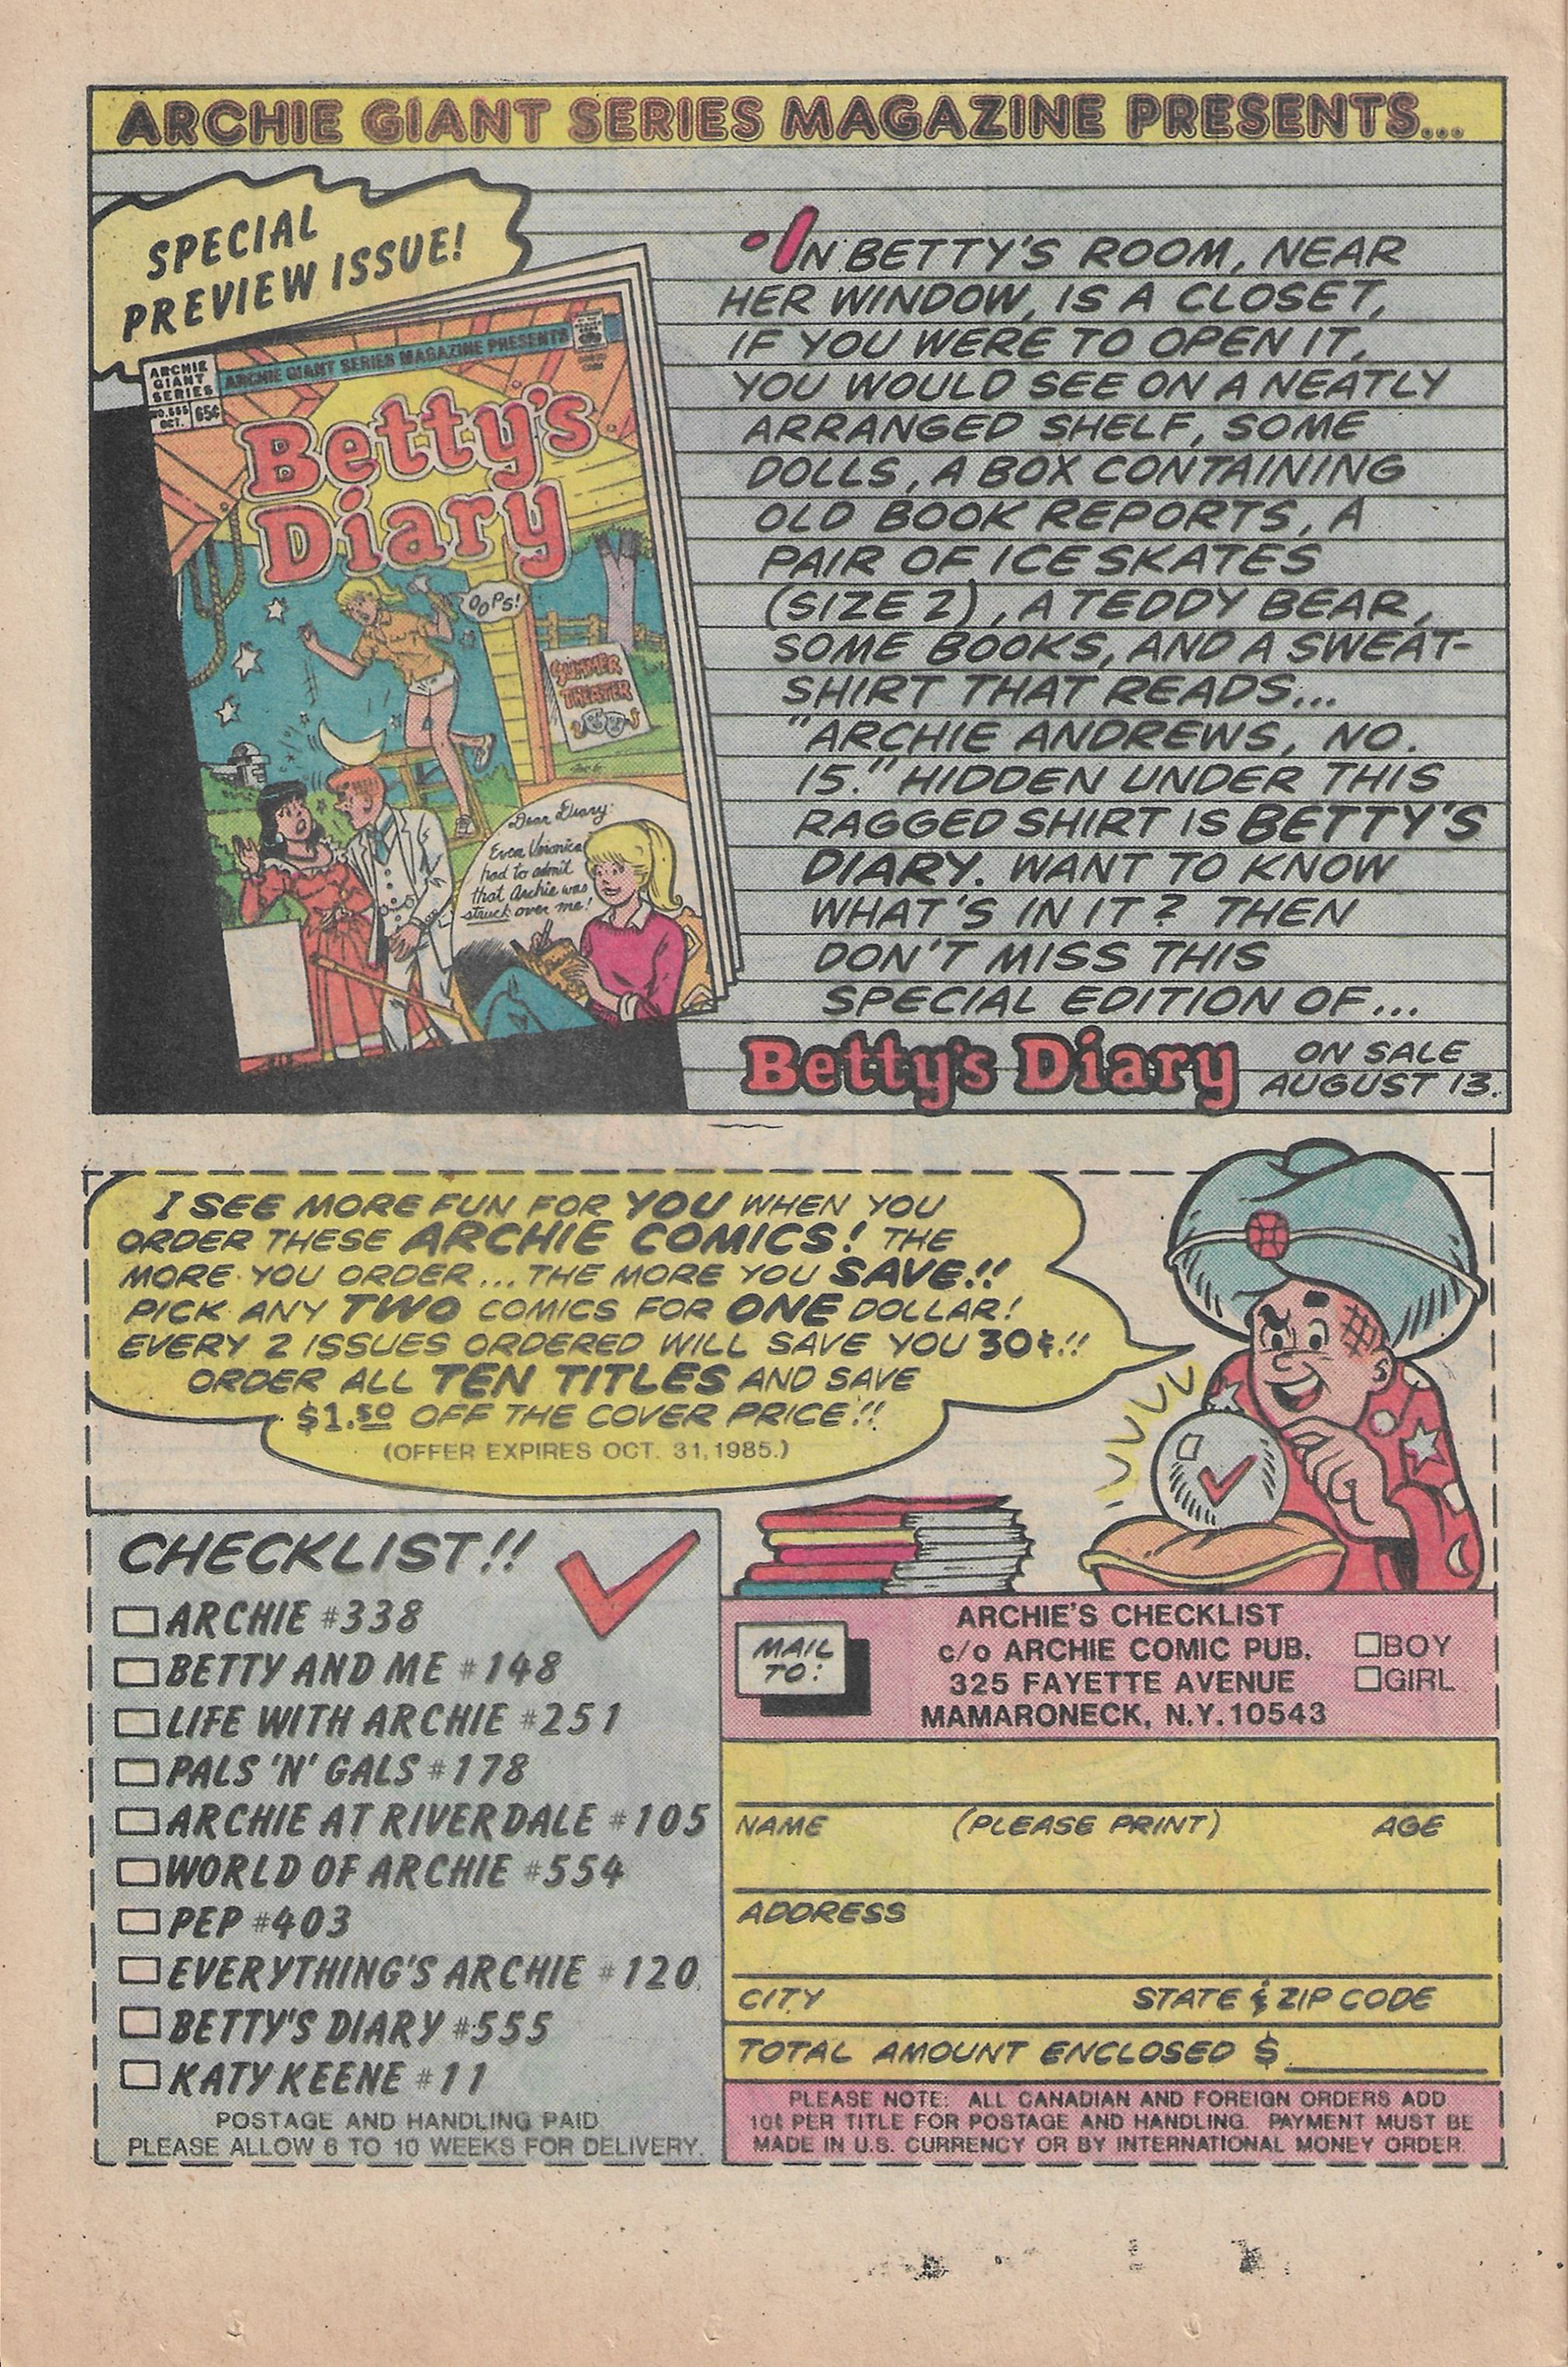 ARCHIE GIANT SERIES MAGAZINE PRESENTS...
SPECIAL
PREVIEW ISSUE!
ARCHIE
GIANT
SERIES
NO.555
OCT.
65¢
ARCHIE GIANT SERIES MAGAZINE PRESENTS
Betty's
Diary
OOPS!
SUMMER
THEATER
Dear Diary:
Even Veronica
had to admit
that Archie was
struck over me!
IN BETTY'S ROOM, NEAR
HER WINDOW, IS A CLOSET,
IF YOU WERE TO OPEN IT,
YOU WOULD SEE ON A NEATLY
ARRANGED SHELF, SOME
DOLLS, A BOX CONTAINING
OLD BOOK REPORTS, A
PAIR OF ICE SKATES
(SIZE 2), A TEDDY BEAR,
SOME BOOKS, AND A SWEAT-
SHIRT THAT READS...
"ARCHIE ANDREWS, NO.
15." HIDDEN UNDER THIS
RAGGED SHIRT IS BETTY'S
DIARY. WANT TO KNOW
WHAT'S IN IT? THEN
DON'T MISS THIS
SPECIAL EDITION OF...
Betty's Diary
ON SALE
AUGUST 13.
I SEE MORE FUN FOR YOU WHEN YOU
ORDER THESE ARCHIE COMICS! THE
MORE YOU ORDER... THE MORE YOU SAVE!!
PICK ANY TWO COMICS FOR ONE DOLLAR!
EVERY 2 ISSUES ORDERED WILL SAVE YOU 30¢!!
ORDER ALL TEN TITLES AND SAVE
$1.50 OFF THE COVER PRICE!!
(OFFER EXPIRES OCT. 31, 1985.)
CHECKLIST!!
ARCHIE #338
BETTY AND ME #148
LIFE WITH ARCHIE #251
PALS 'N' GALS #178
ARCHIE AT RIVERDALE #105
WORLD OF ARCHIE #554
PEP #403
EVERYTHING'S ARCHIE #120
BETTY'S DIARY #555
KATY KEENE #11
POSTAGE AND HANDLING PAID
PLEASE ALLOW 6 TO 10 WEEKS FOR DELIVERY.
MAIL
TO:
ARCHIE'S CHECKLIST
c/o ARCHIE COMIC PUB.
325 FAYETTE AVENUE
MAMARONECK, N.Y. 10543
BOY
GIRL
NAME (PLEASE PRINT) AGE
ADDRESS
CITY STATE & ZIP CODE
TOTAL AMOUNT ENCLOSED $
PLEASE NOTE: ALL CANADIAN AND FOREIGN ORDERS ADD
10¢ PER TITLE FOR POSTAGE AND HANDLING. PAYMENT MUST BE
MADE IN U.S. CURRENCY OR BY INTERNATIONAL MONEY ORDER.